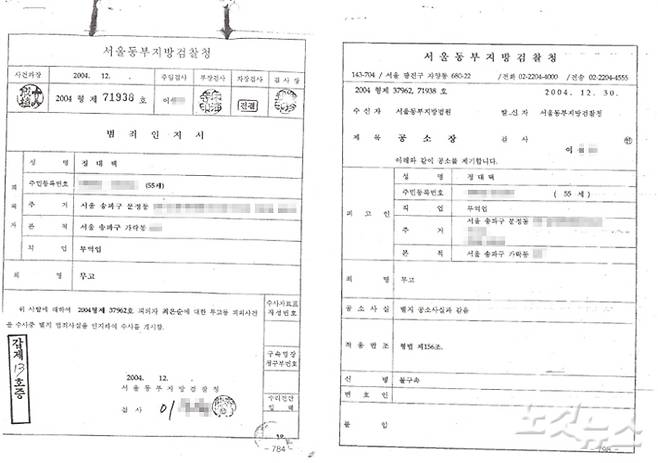 서울동부지방검찰청
사건과장
2004. 12.
주임검사
부장검사
차장검사
검 사 장
2004 형제 71938 호
이
전결
범 죄 인 지 서
피
의
자
성 명
정 대 택
주민등록번호
(55세)
주 거
서울 송파구 문정동
본 적
서울 송파구 가락동
직 업
무역업
죄 명
무고
위 사람에 대하여 2004형제 37962호 피의자 최은순에 대한 무고등 피의사건
을 수사중 별지 범죄사실을 인지하여 수사를 개시함.
수사사료표
작성번호
구속영장
청구부번호
수리건간
입 력
갑제13호증
2004. 12.
서울동부지방검찰청
검 사 이
- 784 -
서울동부지방검찰청
143-704 / 서울 광진구 자양동 680-22 / 전화 02-2204-4000 / 전송 02-2204-4555
2004 형제 37962, 71938 호
2004. 12. 30.
수 신 자 서울동부지방법원
발 신 자 서울동부지방검찰청
제 목 공 소 장
검 사
이
아래와 같이 공소를 제기합니다.
피 고 인
성 명
정 대 택
주민등록번호
( 55 세)
직 업
무역업
주 거
서울 송파구 문정동
본 적
서울 송파구 가락동
죄 명
무고
공 소 사 실
별지 공소사실과 같음
적 용 법 조
형법 제156조.
신 병
불구속
변 호 인
붙 임
노컷뉴스